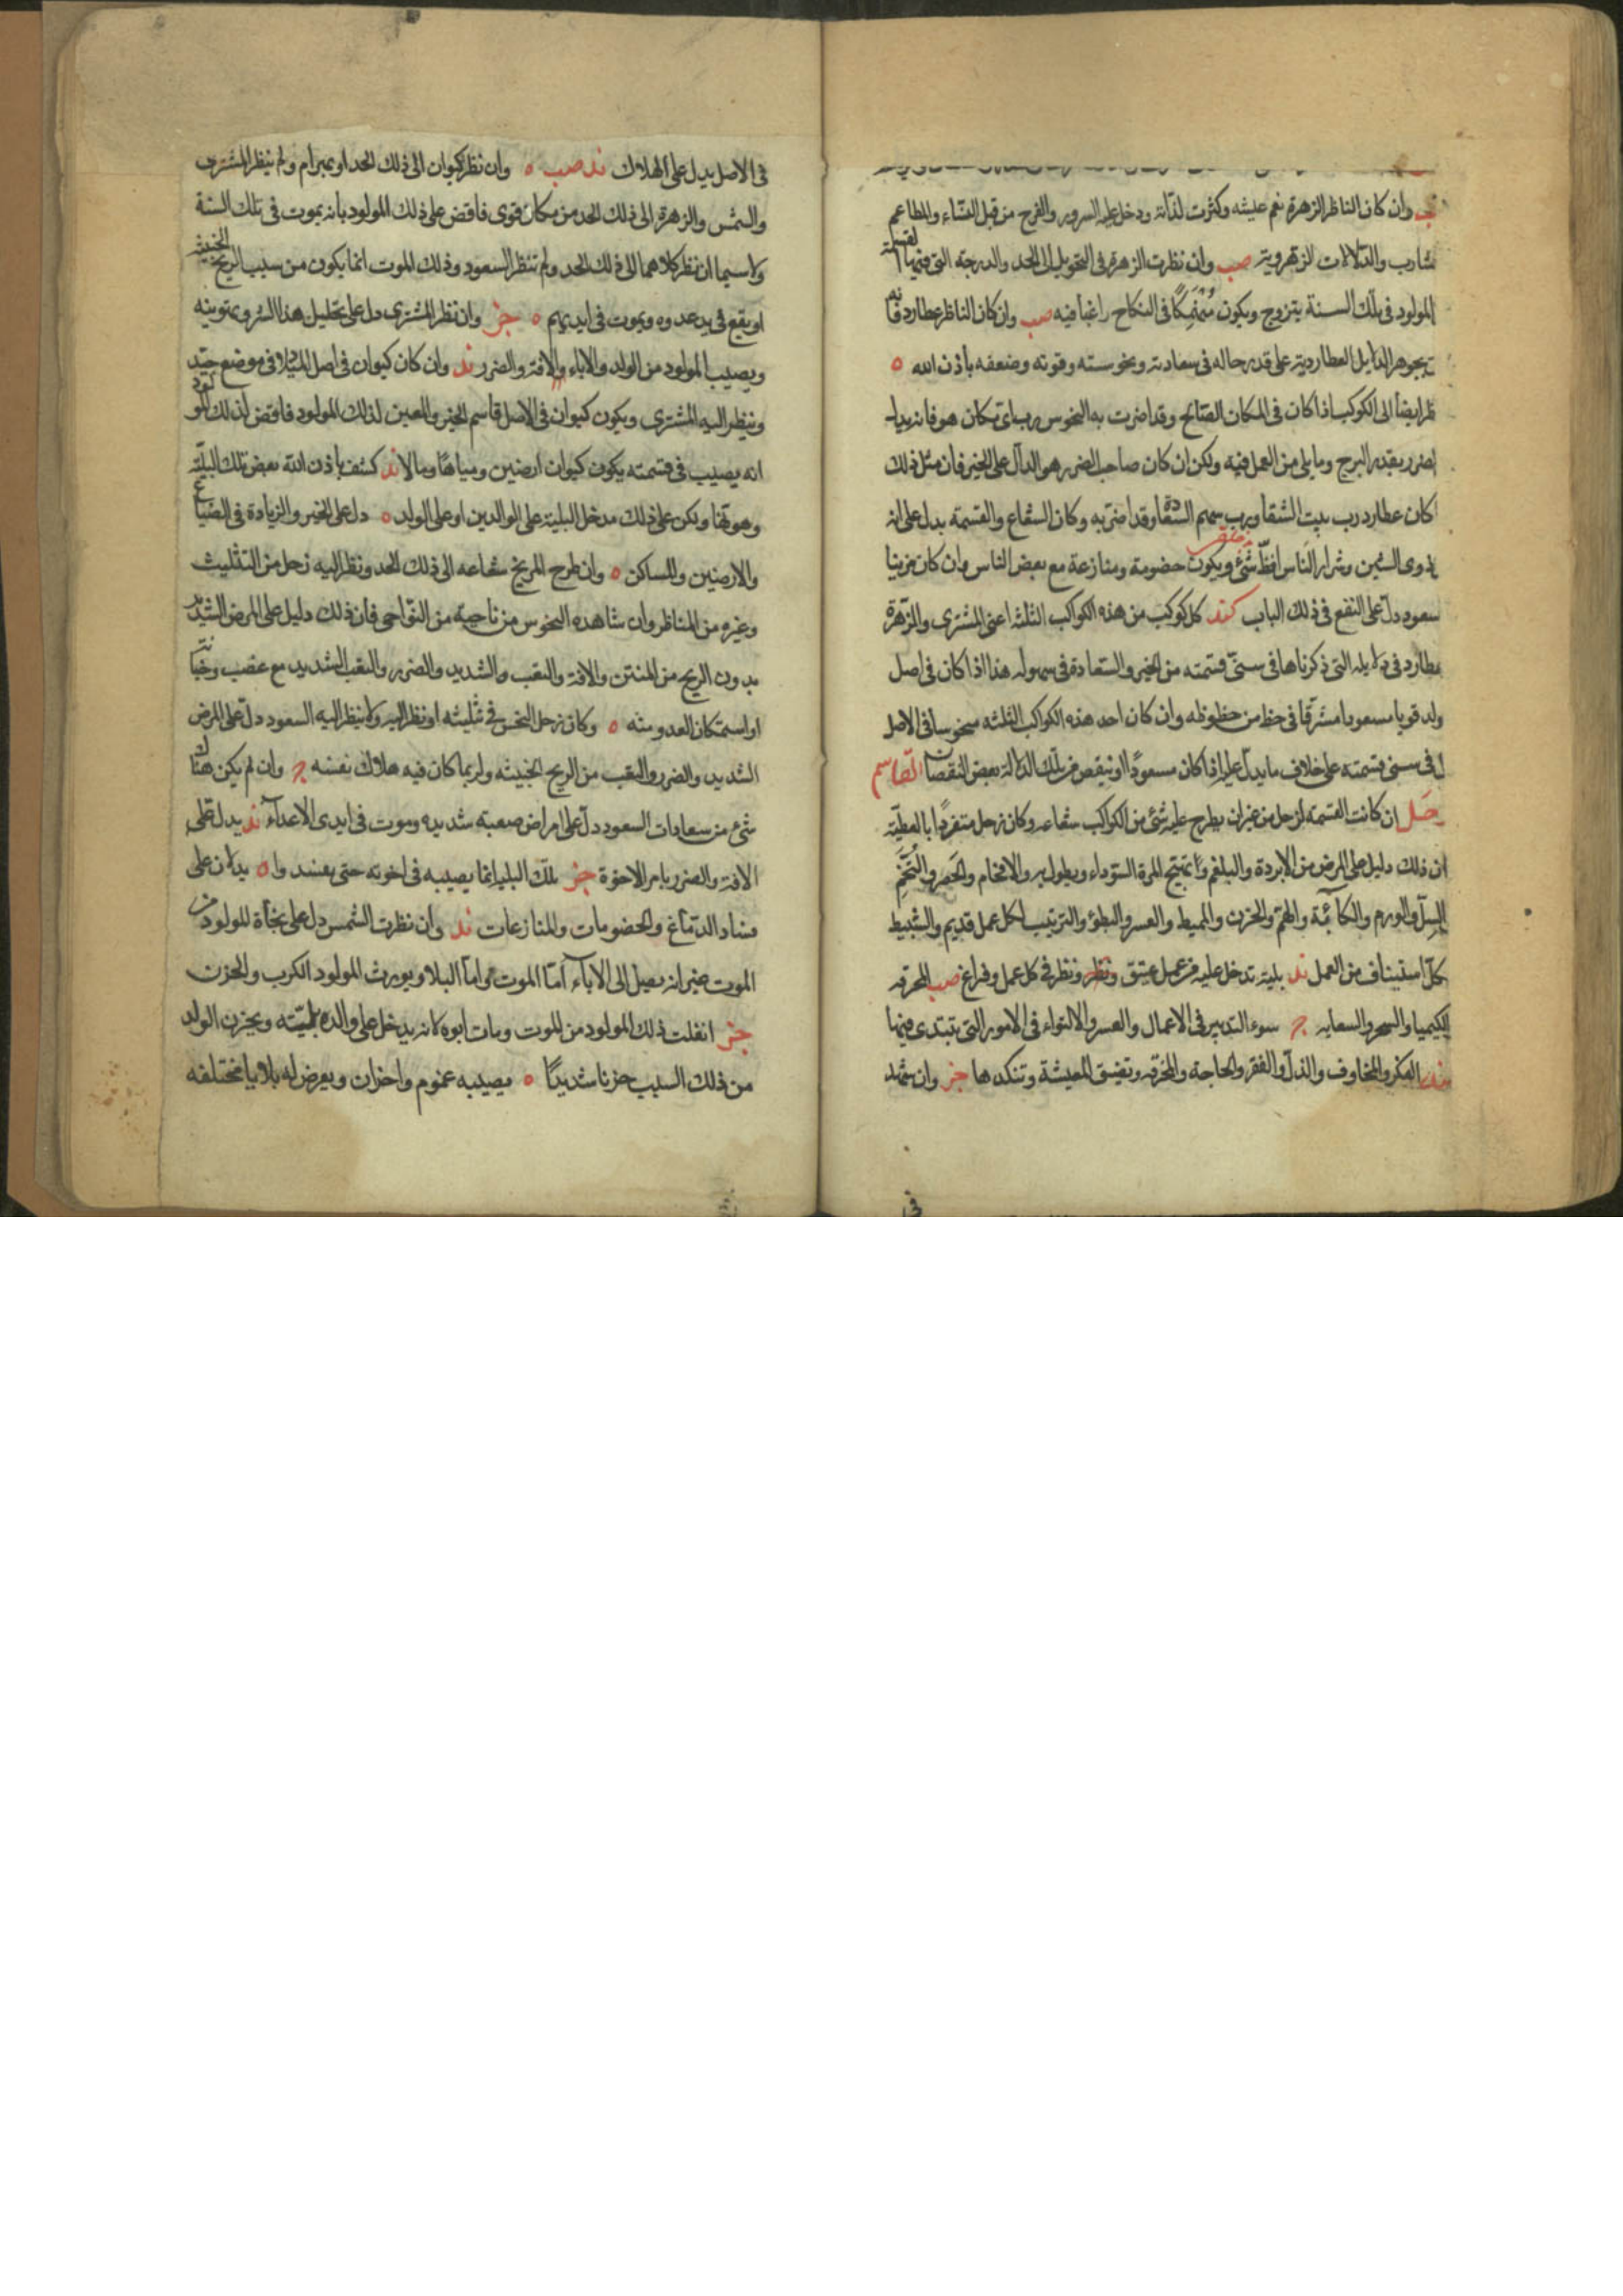 وان كان الناظر الزهرة نعم عليشه وكثرت لذاته ودخل عليه السرور والفرح من قبل النساء والمطاعم
شارب والدلالات الزهروية صب وان نظرت الزهرة فى التحويل الى الحد والدرجة التى فيها القسمة
المولود فى تلك السنة يتزوج ويكون منهمكا فى النكاح راغبا فيه صب وان كان الناظر عطارد فانه
بجوهر الدلايل العطاردية على قدر حاله فى سعادته ونحوسته وقوته وضعفه بأذن الله ه
ظر ايضا الى الكوكب اذا كان فى المكان الصالح وقد اضرت به النحوس رب اى مكان هو فانه يدل
لضرر بقدر البرج وما يلى من العمل فيه ولكن ان كان صاحب الضرر هو الدال على الخير فان مثل ذلك
كان عطارد رب بيت الشقا ورب سهم الشقا وقد اضر به وكان الشعاع والقسمة يدل على انه
ذوى السنين وشرار الناس افظ شئ ويكون خصومة ومنازعة مع بعض الناس وان كان قرينا
سعود دل على النفع فى ذلك الباب كند كل كوكب من هذه الكواكب الثلثه اعنى المشترى والزهرة
عطارد فى دلايله التى ذكرناها فى سنى قسمته من الخير والسعادة فى سهوله هذا اذا كان فى اصل
ولد قويا مسعودا مشرقا فى حظ من حظوظه وان كان احد هذه الكواكب الثلثه منحوسا فى الاصل
ل فى سنى قسمته على خلاف ما يدل عليه اذا كان مسعودا او ينقص من تلك الدلالة بعض النقصان القاسم
زحل ان كانت القسمة لزحل من غير ان يطرح عليه شئ من الكواكب شعاعه وكان زحل متفردا بالعطية
ان ذلك دليل على المرض من الابردة والبلغم وتهيج المرة السوداء ويطول به والافخام والحصر والتخم
السل والورم والكآبة والهم والحزن والمميط والعسر والبطؤ والترتيب لكل عمل قديم والتثبيط
كل استيناف من العمل ند بلية تدخل عليه من عمل عتيق ونظر ونظر فى كل عمل وفراغ صب المحرقه
الكيميا والسحر والسعايه ج سوء التدبير فى الاعمال والعسر والالتواء فى الامور التى تبتدى فيها
ند الفكر والمخاوف والذل والفقر والحاجة والمخرقه وتضيق المعيشة وتنكدها خز وان شهد
فى الاصل يدل على الهلاك ند صب ه وان نظر كيوان الى ذلك الحد او بهرام ولم ينظر المشترى
والشمس والزهرة الى ذلك الحد من مكان قوى فاقض على ذلك المولود بانه يموت فى تلك السنة
ولا سيما ان نظر كلاهما الى ذلك الحد ولم تنظر السعود وذلك الموت انما يكون من سبب الريح الخبيثة
او يقع فى يد عدوه ويموت فى ايديهم ه خز وان نظر المشترى دل على تحليل هذا الشر وتموينه
ويصيب المولود من الولد والاباء والافة والضرر ند وان كان كيوان فى اصل الميلاد فى موضع جيد
وينظر اليه المشترى ويكون كيوان فى الاصل قاسم الخير والمعين لذلك المولود فاقض لذلك المولود
انه يصيب فى قسمته يكون كيوان ارضين ومياها ومالا ند كشف باذن الله بعض تلك البلية
وهوتها ولكن على ذلك مدخل البلية على الوالدين او على الولد ه دل على الخير والزيادة فى الضياع
والارضين والمساكن ه وان طرح المريخ شعاعه الى ذلك الحد ونظر اليه زحل من التثليث
وغيره من المناظر وان شاهده النحوس من ناحية من النواحى فان ذلك دليل على المرض الشديد
بدون الريح من المنتن والافة والتعب والشديد والضرر والتعب الشديد مع غضب وخباثة
او استمكان العدو منه ه وكان زحل النحس فى تثليثه او نظر اليه ولا ينظر اليه السعود دل على المرض
الشديد والضرر والتعب من الريح الخبيثه ولربما كان فيه هلاك نفسه ج وان لم يكن هناك
شئ من سعادات السعود دل على امراض صعبة شديده وموت فى ايدى الاعداء ند يدل على
الافة والضرر بامر الاخوة خز تلك البليا انما يصيبه فى اخوته حتى يعتند وا ه يدلان على
فساد الدماغ والخصومات والمنازعات ند وان نظرت الشمس دل على نجاة المولود من
الموت غير انه يصل الى الاباء اما الموت واما البلا ويورث المولود الكرب والحزن
خز انفلت ذلك المولود من الموت ومات ابوه لانه يدخل على والده بليته ويحزن الولد
من ذلك السبب حزنا شديدا ه يصيبه غموم واحزان ويعرض له بلايا مختلفه